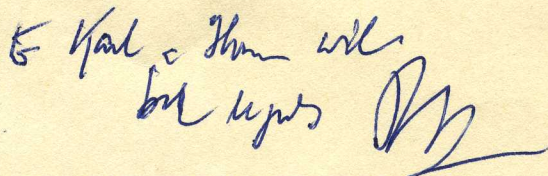 To Karl & Thomas with
best regards